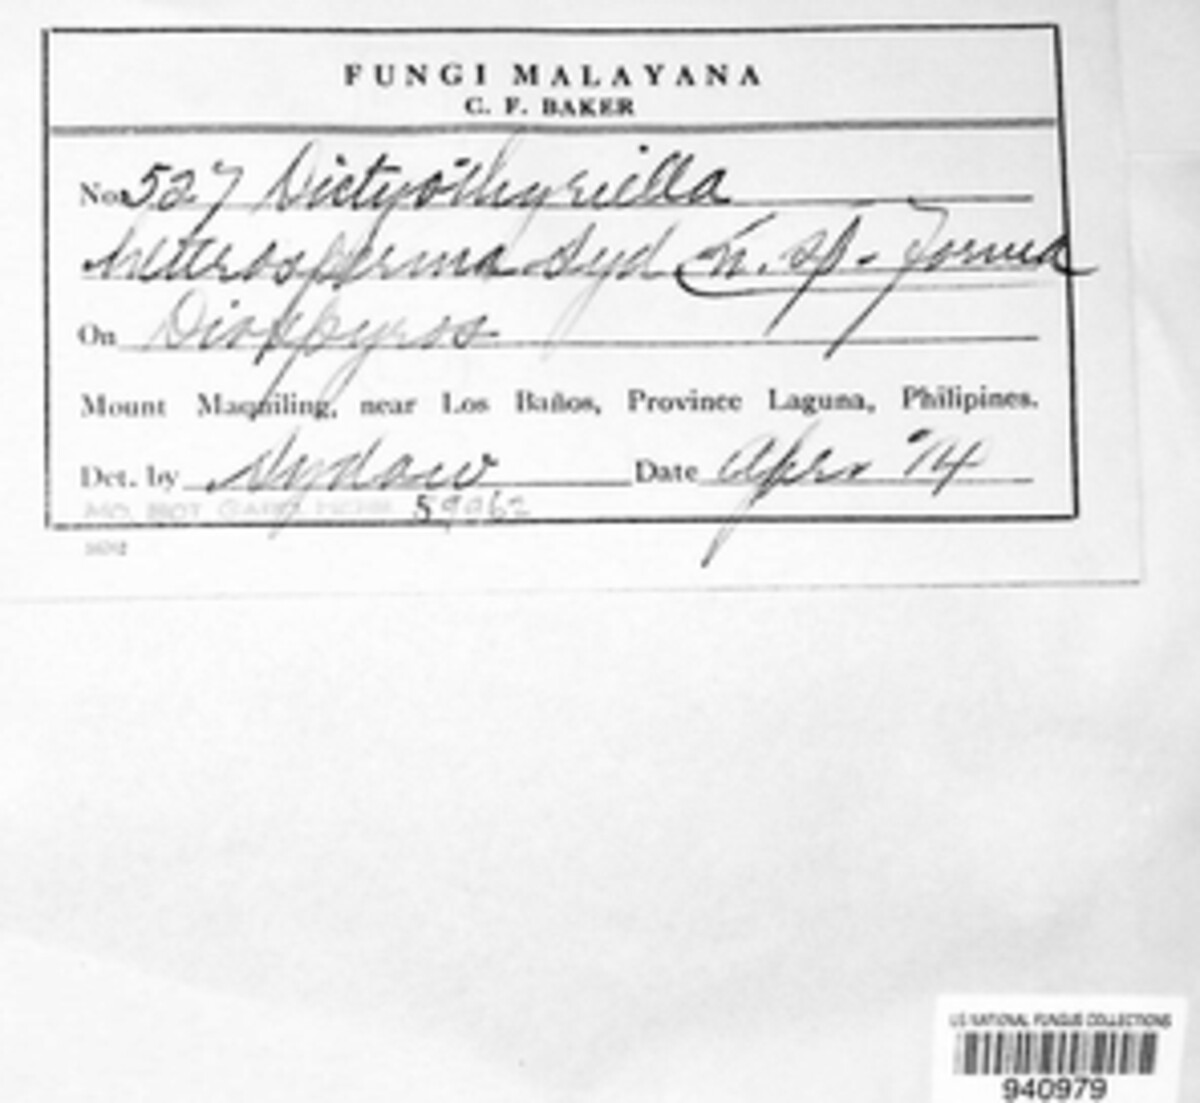 FUNGI MALAYANA
C. F. BAKER
No. 527 Dictyothyriella
heterosperma Syd n. sp. forma
On Diospyros
Mount Maquiling, near Los Baños, Province Laguna, Philipines.
Det. by Sydow Date Apr. '14
MO. BOT GARD. HERB. 59962
US NATIONAL FUNGUS COLLECTIONS
940979